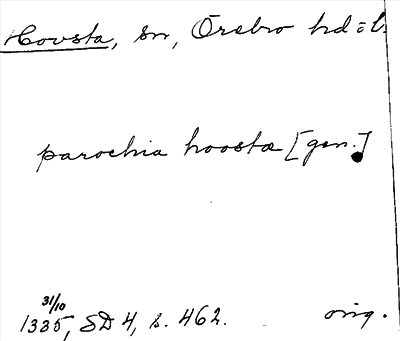 Hovsta, sn, Örebro hd o l.
parochia hoostæ [gen.]
31/10
1335, SD 4, s. 462. orig.